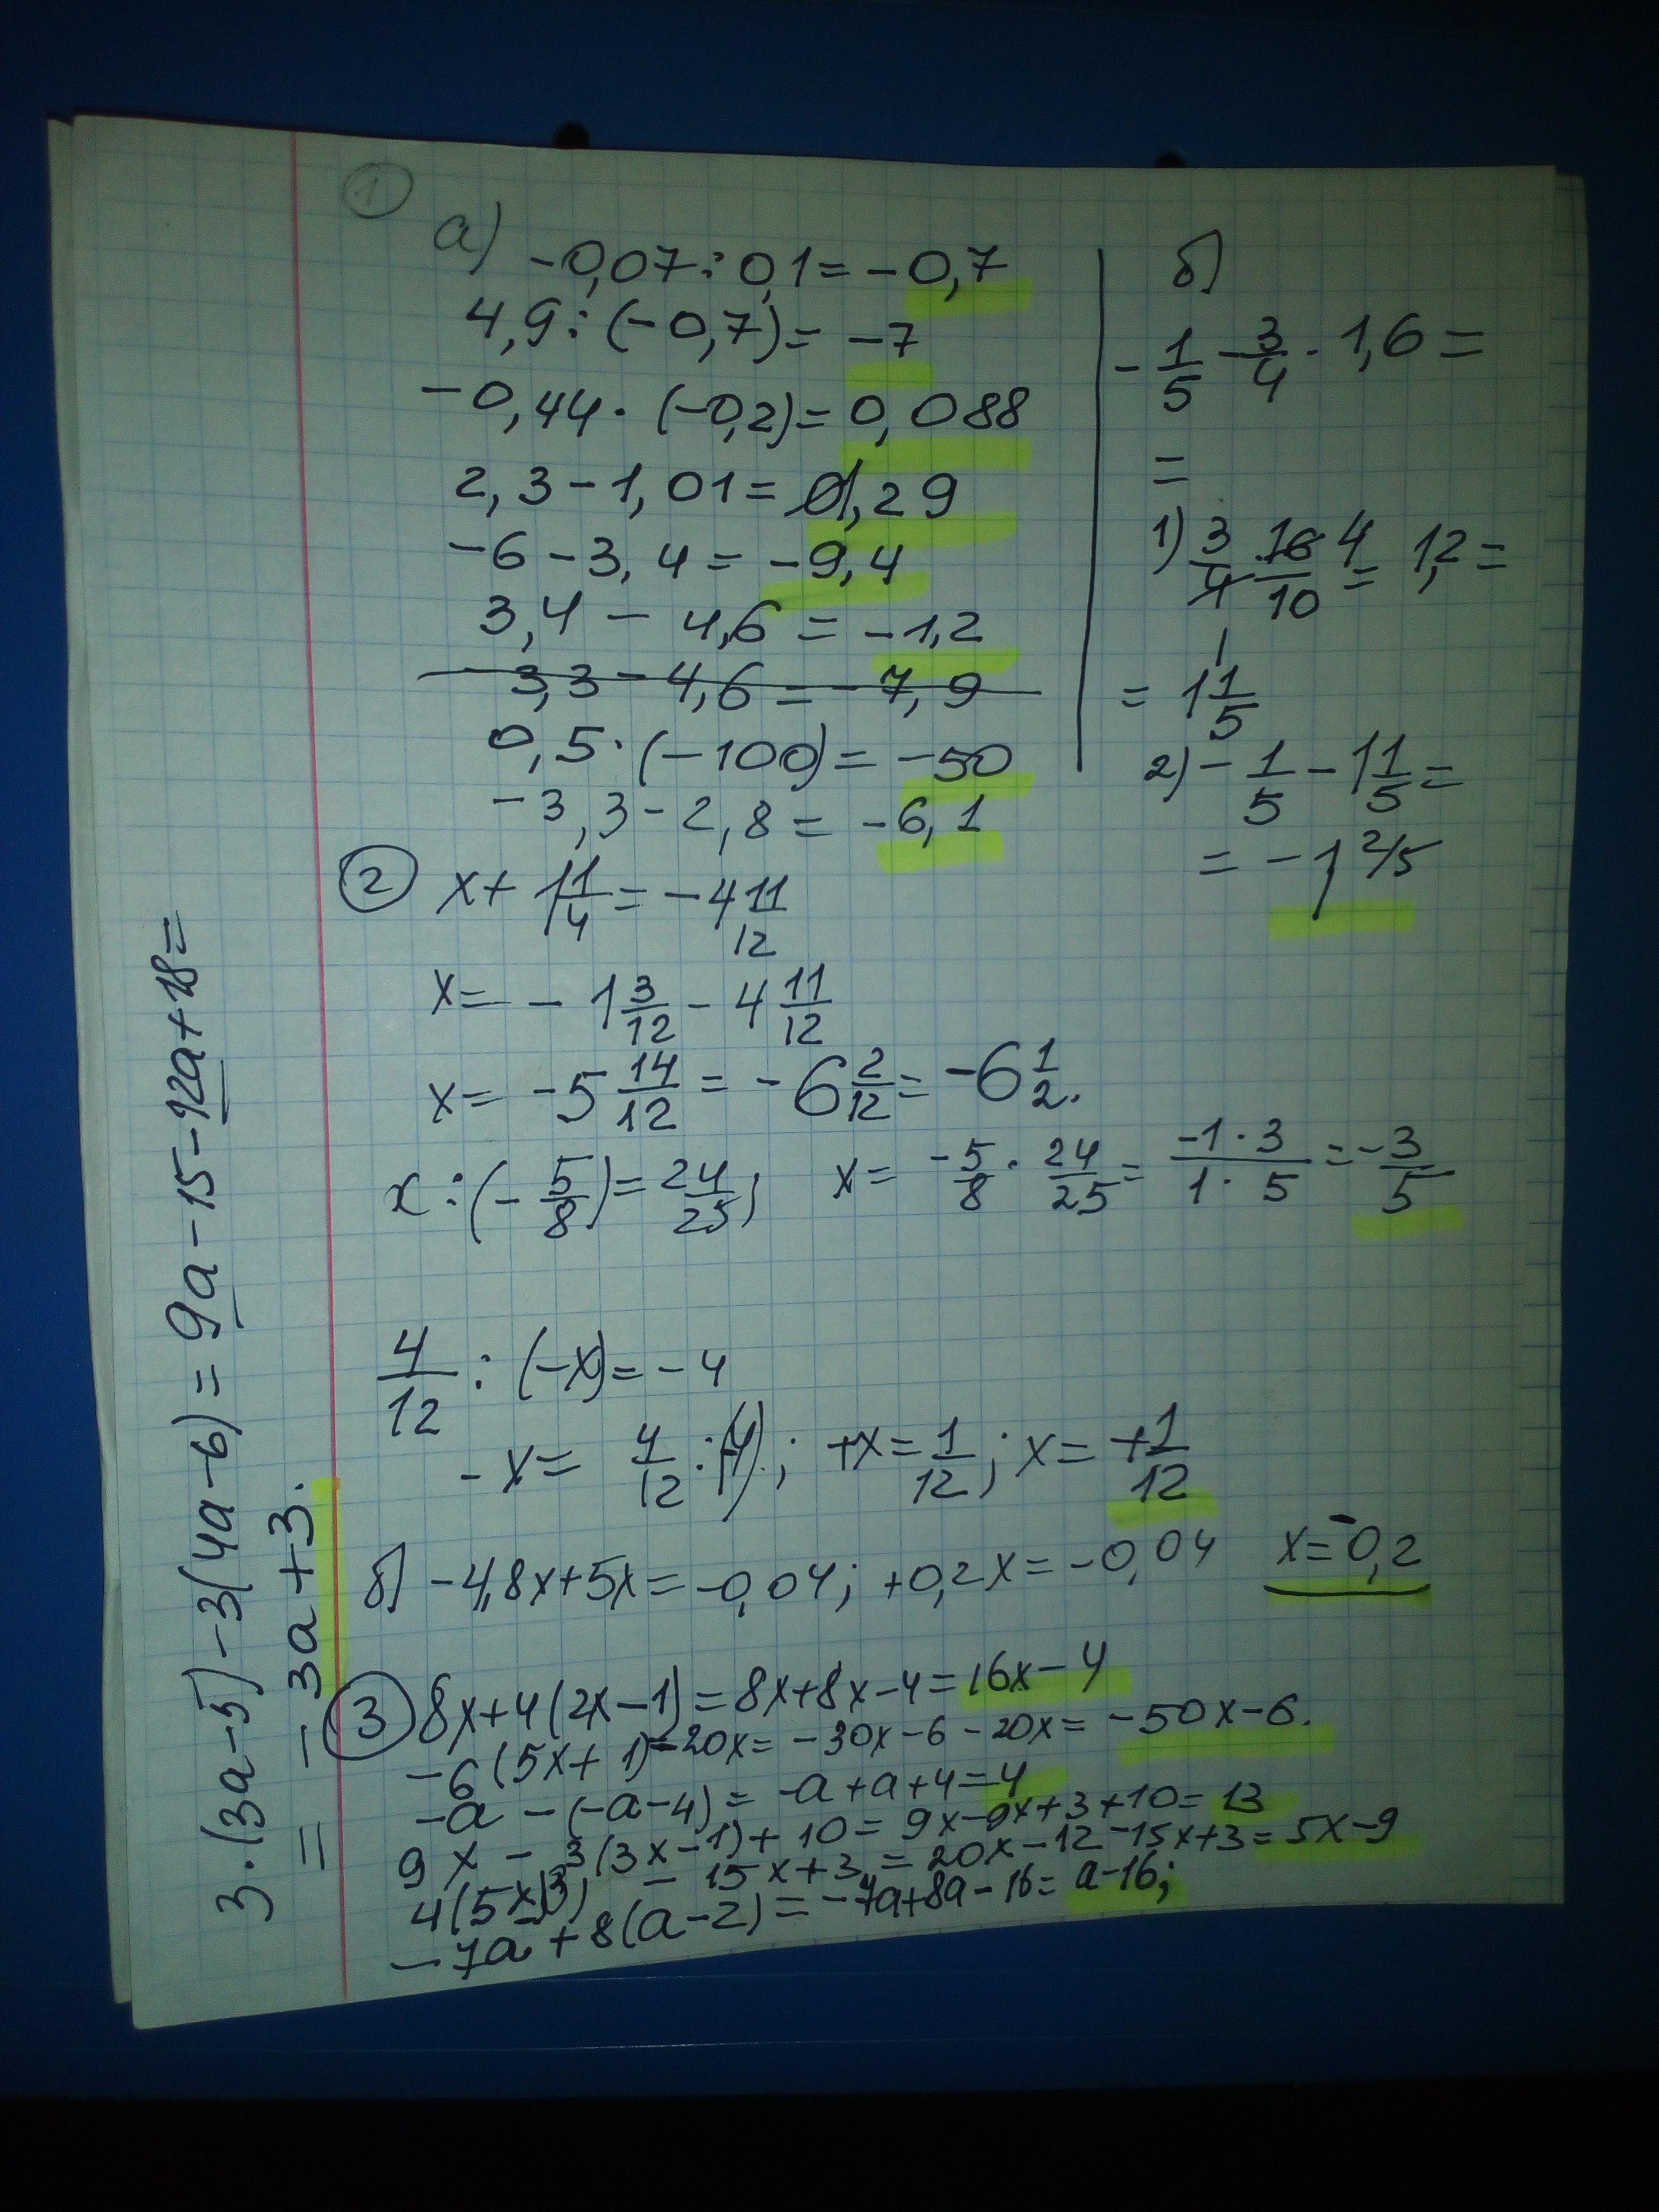 1
а) -0,07 : 0,1 = -0,7
4,9 : (-0,7) = -7
-0,44 · (-0,2) = 0,088
2,3 - 1,01 = 1,29
-6 - 3,4 = -9,4
3,4 - 4,6 = -1,2
3,3 - 4,6 = -7,9
0,5 · (-100) = -50
-3,3 - 2,8 = -6,1
б)
-1/5 - 3/4 · 1,6 =
=
1) 3/4 · 16/10 4/1 = 1,2 =
= 1 1/5
2) -1/5 - 1 1/5 =
= -1 2/5
2 x + 1 1/4 = -4 11/12
x = -1 3/12 - 4 11/12
x = -5 14/12 = -6 2/12 = -6 1/2.
x : (-5/8) = 24/25; x = -5/8 · 24/25 = -1·3/1·5 = -3/5
4/12 : (-x) = -4
-x = 4/12 : (-4); +x = 1/12; x = +1/12
б) -4,8x + 5x = -0,04; +0,2x = -0,04 x = -0,2
3 8x + 4(2x - 1) = 8x + 8x - 4 = 16x - 4
-6(5x + 1) - 20x = -30x - 6 - 20x = -50x - 6.
-a - (-a - 4) = -a + a + 4 = 4
9x - 3(3x - 1) + 10 = 9x - 9x + 3 + 10 = 13
4(5x - 3) - 15x + 3 = 20x - 12 - 15x + 3 = 5x - 9
-7a + 8(a - 2) = -7a + 8a - 16 = a - 16;
3·(3a - 5) - 3(4a - 6) = 9a - 15 - 12a + 18 =
= -3a + 3.